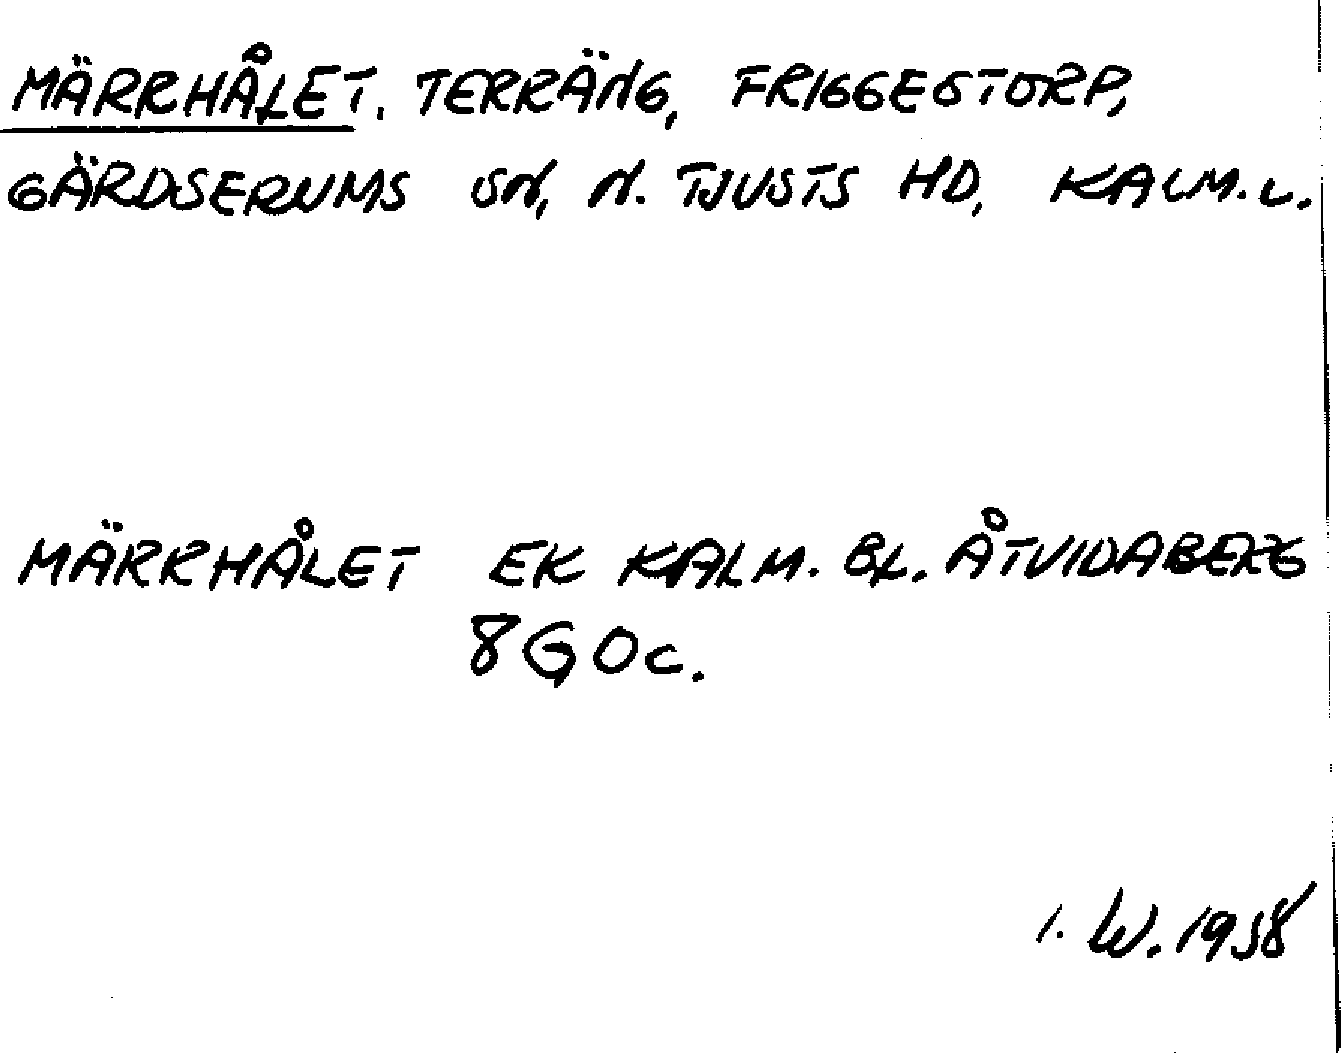 MÄRRHÅLET. TERRÄNG, FRIGGESTORP,
GÄRDSERUMS SN, N. TJUSTS HD, KALM. L.
MÄRRHÅLET EK KALM. BL. ÅTVIDABERG
8G0c.
I. W. 1958